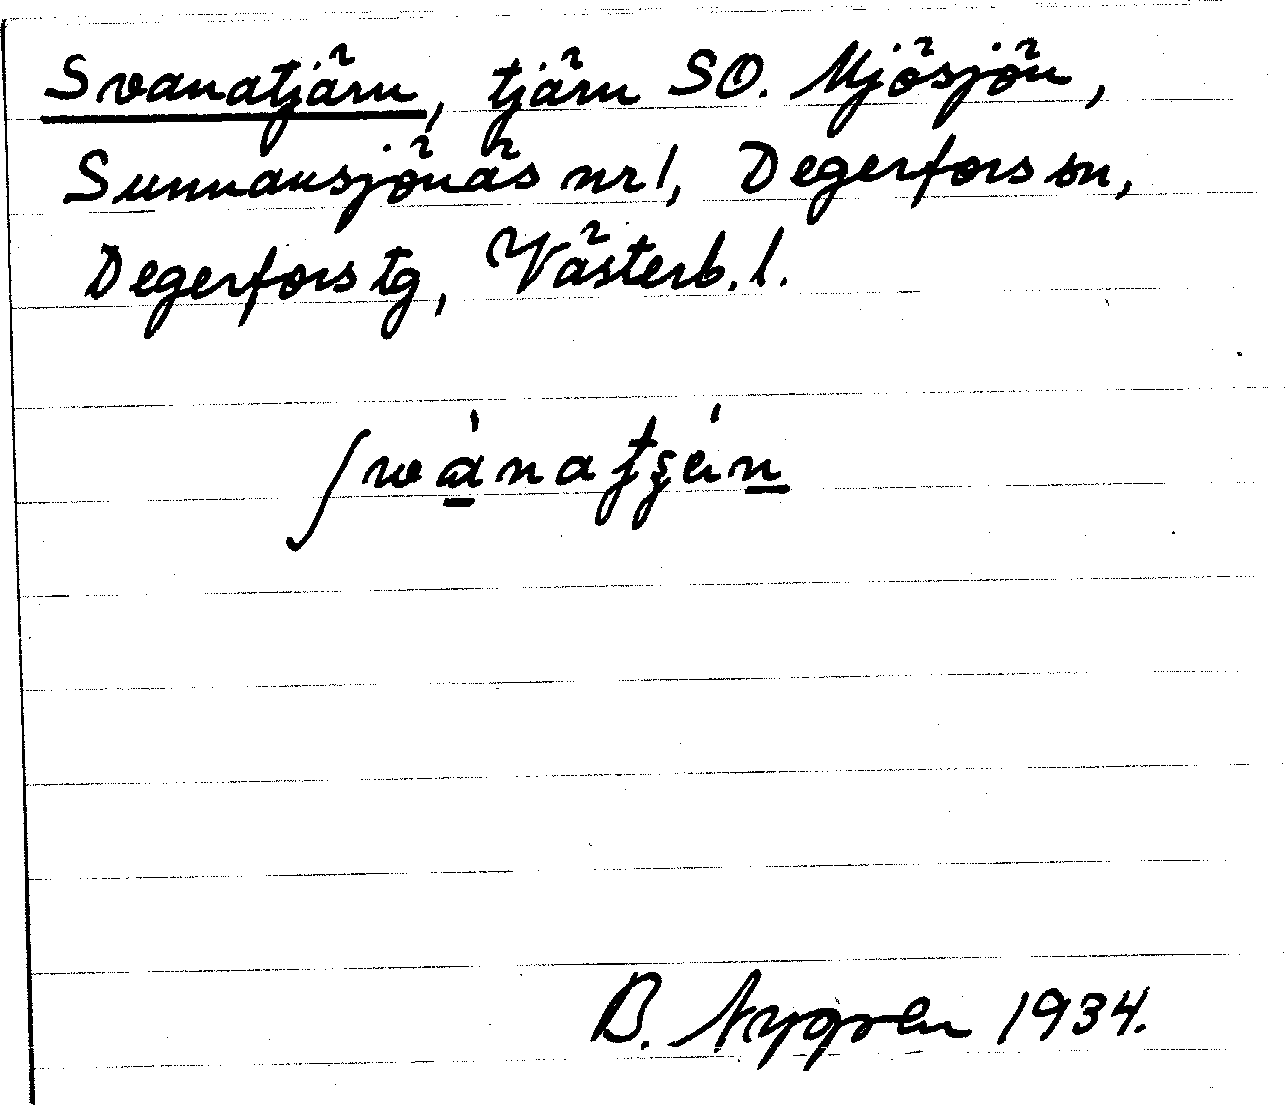 Svanatjärn, tjärn SO. Mjösjön,
Sunnansjönäs nr 1, Degerfors sn,
Degerfors tg, Västerb. l.
B. Nygren 1934.